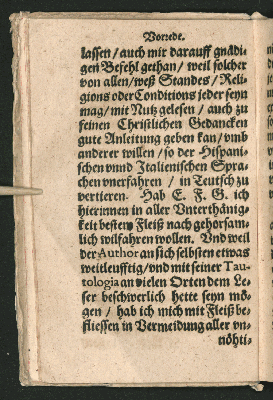 Vorrede.
lassen / auch mir darauff gnädi-
gen Befehl gethan / weil solcher
von allen / weß Standes / Reli-
gions oder Conditions jeder seyn
mag / mit Nutz gelesen / auch zu
feinen Christlichen Gedancken
gute Anleitung geben kan / vmb
anderer willen / so der Hispani-
schen vnnd Italienischen Spra-
chen vnerfahren / in Teutsch zu
vertieren. Hab E. F. G. ich
hierinnen in aller Vnterthänig-
keit bestem Fleiß nach gehorsam-
lich wilfahren wollen. Vnd weil
der Author an sich selbsten etwas
weitleufftig / vnd mit seiner Tau-
tologia an vielen Orten dem Le-
ser beschwerlich hette seyn mö-
gen / hab ich mich mit Fleiß be-
fliessen in Vermeidung aller vn-
nöhti-